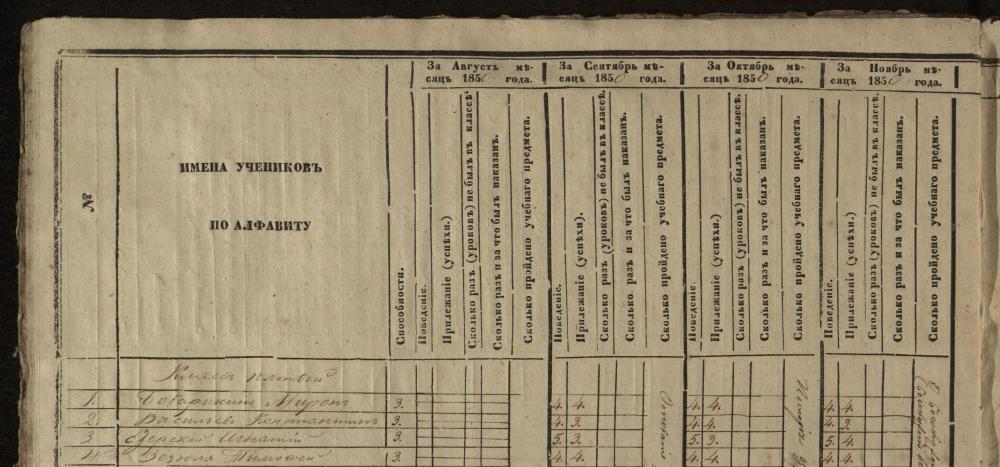 За Августъ мѣ-
сяцъ 1850 года.
За Сентябрь мѣ-
сяцъ 1850 года.
За Октябрь мѣ-
сяцъ 1850 года.
За Ноябрь мѣ-
сяцъ 1850 года.
№
ИМЕНА УЧЕНИКОВЪ
ПО АЛФАВИТУ
Способности.
Поведеніе.
Прилежаніе (успѣхи.)
Сколько разъ (уроковъ) не былъ въ классѣ.
Сколько разъ и за что былъ наказанъ.
Сколько пройдено учебнаго предмета.
Поведеніе.
Прилежаніе (успѣхи).
Сколько разъ (уроковъ) не былъ въ классѣ.
Сколько разъ и за что былъ наказанъ.
Сколько пройдено учебнаго предмета.
Поведеніе.
Прилежаніе (успѣхи.)
Сколько разъ (уроковъ) не былъ въ классѣ.
Сколько разъ и за что былъ наказанъ.
Сколько пройдено учебнаго предмета.
Поведеніе.
Прилежаніе (успѣхи.)
Сколько разъ (уроковъ) не былъ въ классѣ.
Сколько разъ и за что былъ наказанъ.
Сколько пройдено учебнаго предмета.
Классъ пятый
1. Миронъ 3. 4. 4. 4. 4. 4. 4.
2. Василій Константинъ 3. 4. 3. 4. 4. 4. 3.
3 Игнатій 3. 5. 3. 5. 3. 5. 4.
4. Тимофей 3. 4. 4. 4. 4. 4. 4.